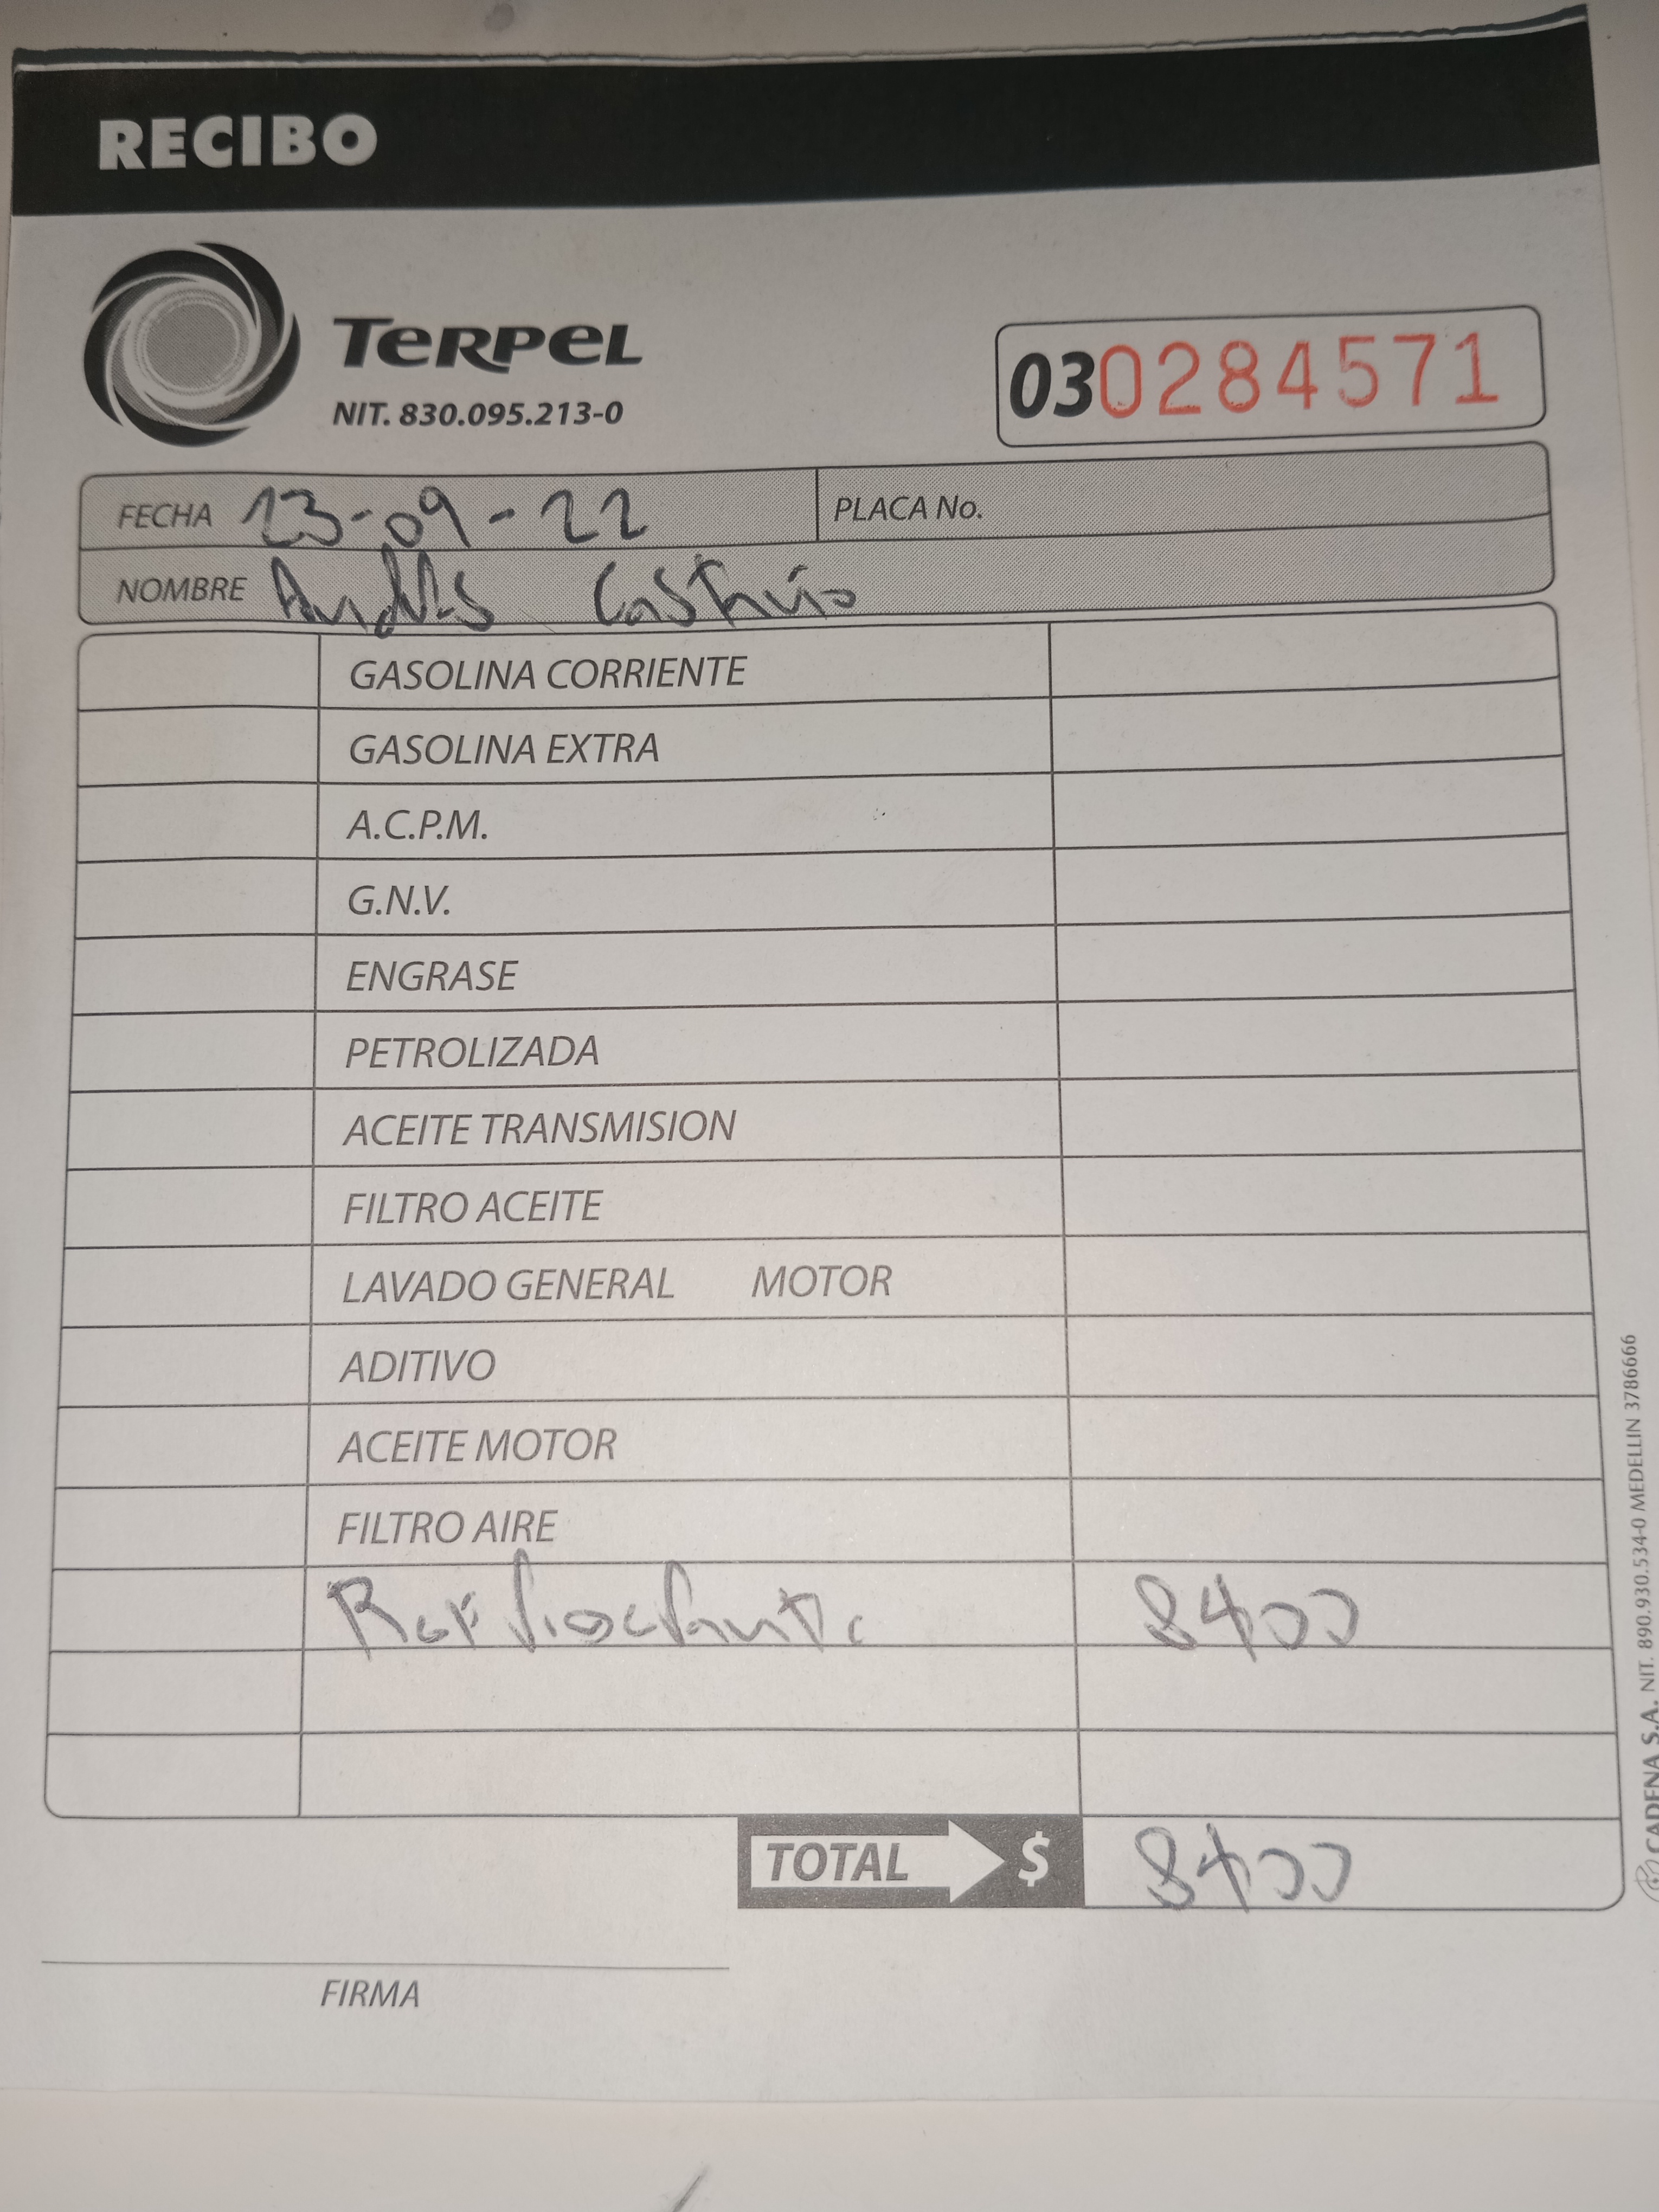 RECIBO
TERPEL
NIT. 830.095.213-0
030284571
FECHA 23-09-22 PLACA No.
NOMBRE Andrés Castaño
GASOLINA CORRIENTE
GASOLINA EXTRA
A.C.P.M.
G.N.V.
ENGRASE
PETROLIZADA
ACEITE TRANSMISION
FILTRO ACEITE
LAVADO GENERAL MOTOR
ADITIVO
ACEITE MOTOR
FILTRO AIRE
8400
TOTAL $ 8400
FIRMA
CADENA S.A. NIT. 890.930.534-0 MEDELLIN 3786666